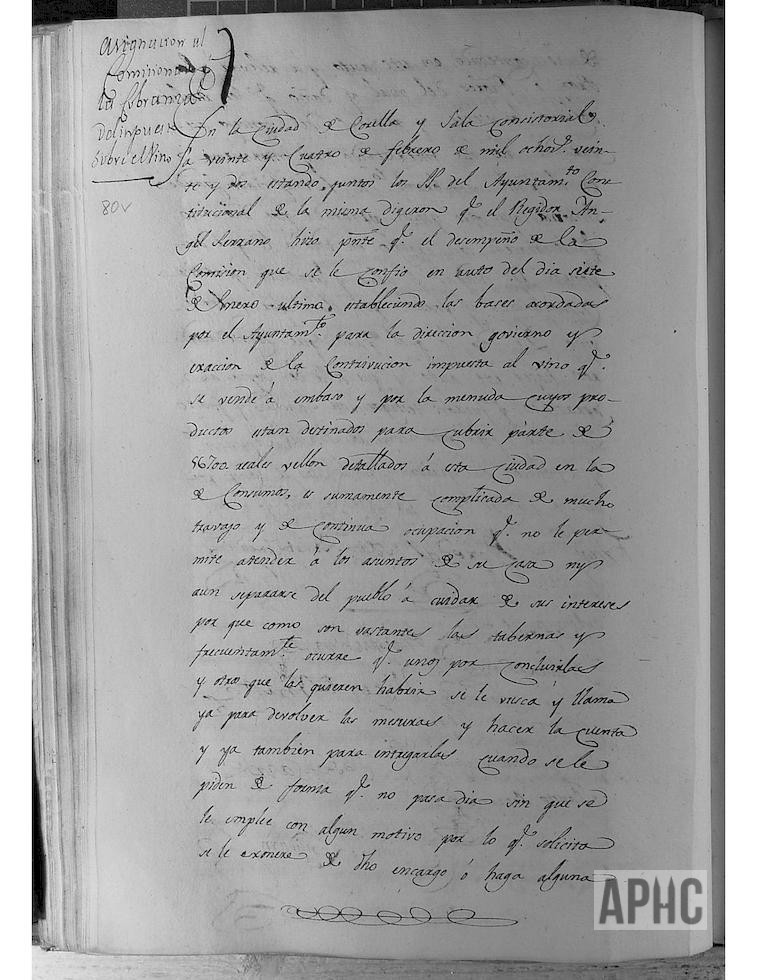 Asignacion al
Comisionado á
la Cobranza
del impuesto
sobre el Vino
80v
En la Ciudad de Corella y Sala Consistorial
a veinte y Cuatro de febrero de mil ochos. vein-
te y dos estando juntos los SS. del Ayuntam.to Cons-
titucional de la misma digeron q.e el Regidor An-
gel Serrano hizo pnte q.e el desempeño de la
Comision que se le confio en auto del dia siete
de Enero ultimo, estableciendo las bases acordadas
por el Ayuntam.to para la direccion govierno y
exaccion de la Contrivucion impuesta al vino q.e
se vende á embaso y por la menuda cuyos pro-
ductos estan destinados para cubrir parte de
56700 reales vellon detallados á esta Ciudad en la
de Consumos, es sumamente complicada de mucho
travajo y de continua ocupacion q.e no le per-
mite atender á los asuntos de su Casa ny
aun separarse del pueblo á cuidar de sus intereses
por que como son vastantes las tabernas y
frecuentam.te ocurre q.e unos por concluirlas
y otros que las quieren habrir se le vusca y llama
ya para devolver las mesuras y hacer la cuenta
y ya tambien para entregarlas cuando se le
piden de forma q.e no pasa dia sin que se
le emplee con algun motivo por lo q.e solicita
se le exonere de dho encargo ó haga alguna
APHC